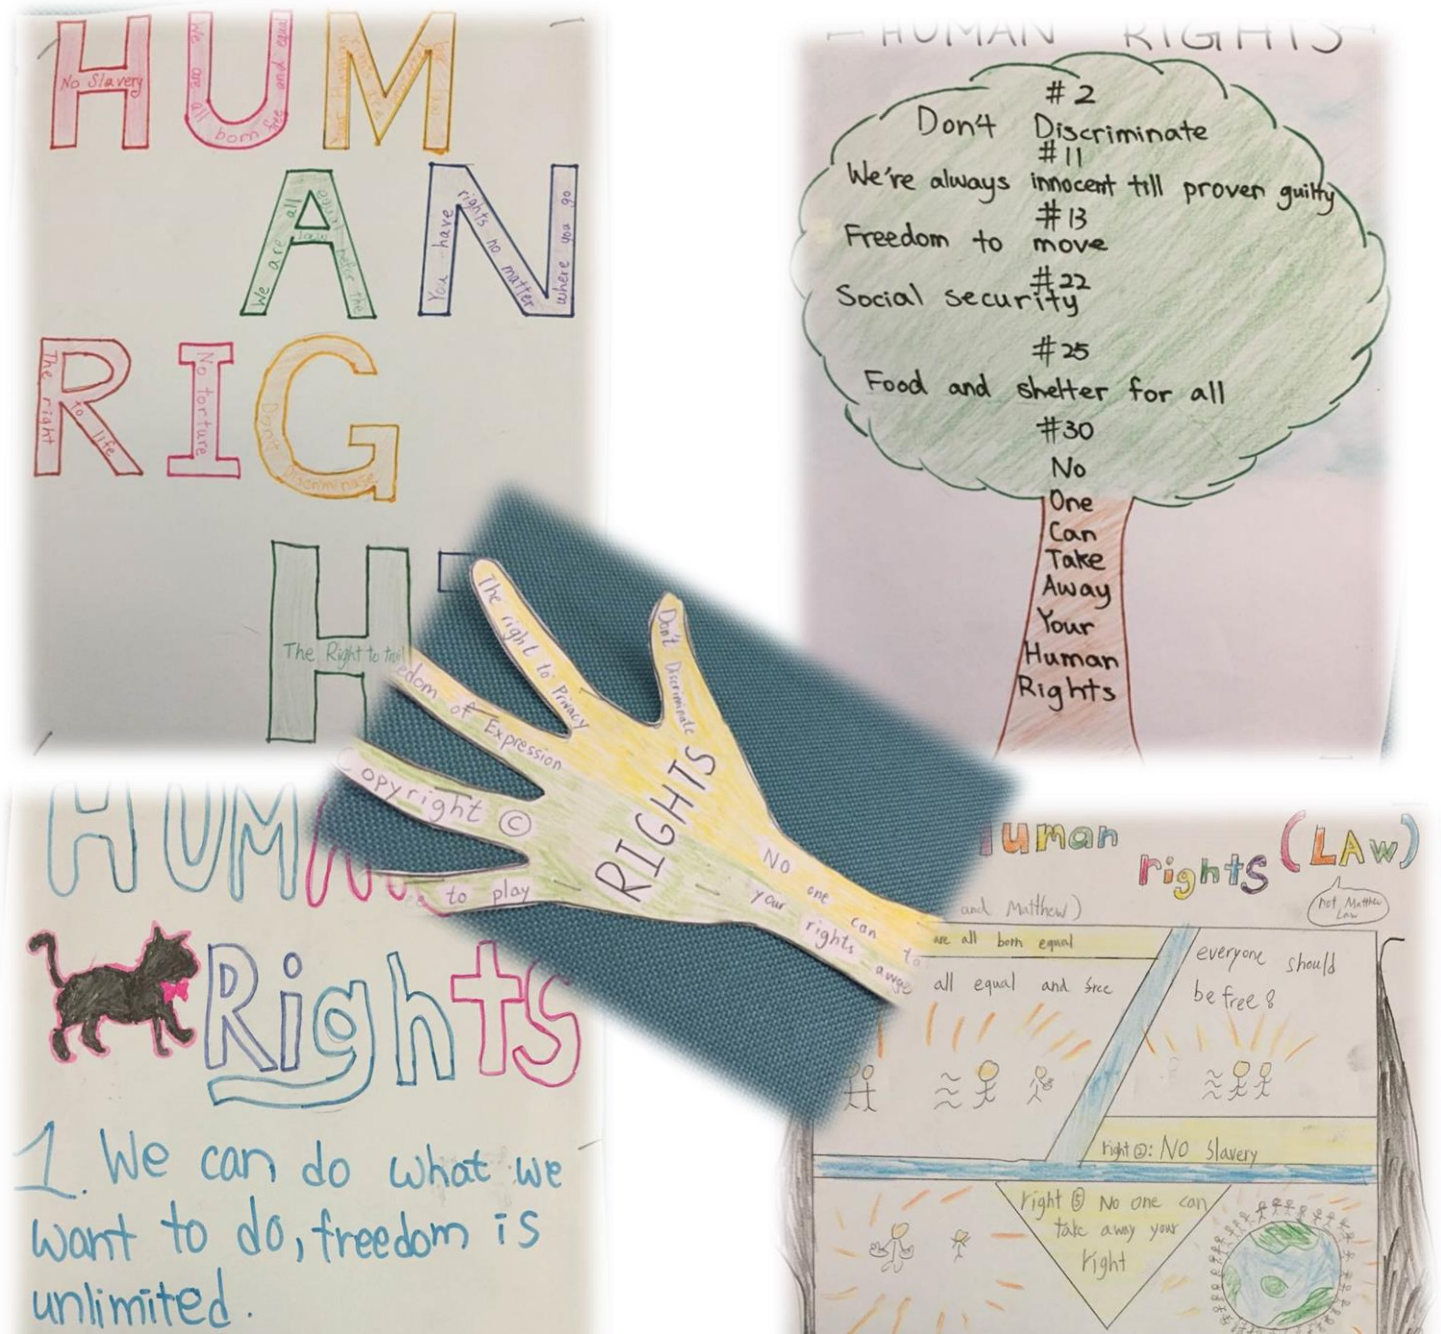 HUM
No Slavery
We are all born free and equal
AN
We are all equal before the law
You have rights no matter where you go
RIG
The right to life
No torture
Don't Discriminate
H
The Right to trial
HUMAN RIGHTS
#2
Don't Discriminate
#11
We're always innocent till proven guilty
#13
Freedom to move
#22
Social security
#25
Food and shelter for all
#30
No
One
Can
Take
Away
Your
Human
Rights
The right to Privacy
Don't Discriminate
edom of Expression
Copyright ©
to play
RIGHTS
NO one can to
your rights away
HUMA
Rights
1. We can do what we
want to do, freedom is
unlimited.
uman
rights (LAW)
not Matthew
Law
and Matthew)
are all born equal
all equal and free
everyone should
be free &
right ②: NO Slavery
right ⑤ No one can
take away your
right